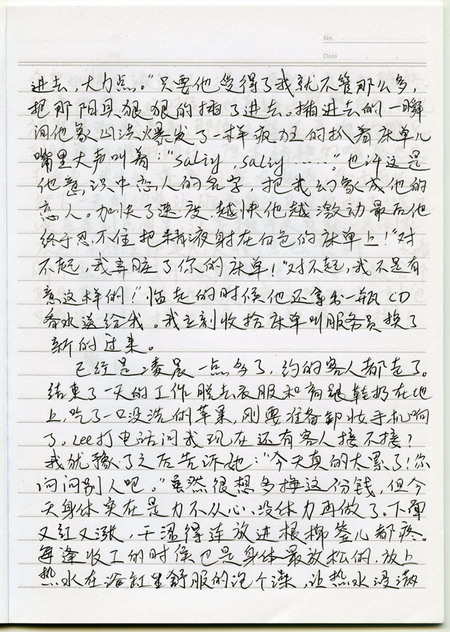 No.
Date
进去,大力点。"只要他受得了我就不管那么多,
把那阳具狠狠的插了进去。插进去的一瞬
间他象山洪爆发了一样疯狂的抓着床单儿
嘴里大声叫着:"sally,sally……。"也许这是
他意识中恋人的名字,把我幻象成他的
恋人。加快了速度,越快他越激动最后他
终于忍不住把精液射在白色的床单上!"对
不起,我弄脏了你的床单!"对不起,我不是有
意这样的!"临走的时候他还拿出一瓶CD
香水送给我。我立刻收拾床单叫服务员换了
新的过来。
已经是凌晨一点多了,约的客人都走了。
结束了一天的工作脱去衣服和高跟鞋扔在地
上,吃了一口没洗的苹果,刚要准备卸妆手机响
了。Lee打电话问我现在还有客人接不接?
我犹豫了之后告诉他:"今天真的太累了!你
问问别人吧。"虽然很想多挣这份钱,但今
天身体实在是力不从心,没体力再做了。下面
又红又涨,干涩得连放进根棉签儿都疼。
每逢收工的时候也是身体最放松的,放上
热水在浴缸里舒服的泡个澡,让热水浸满